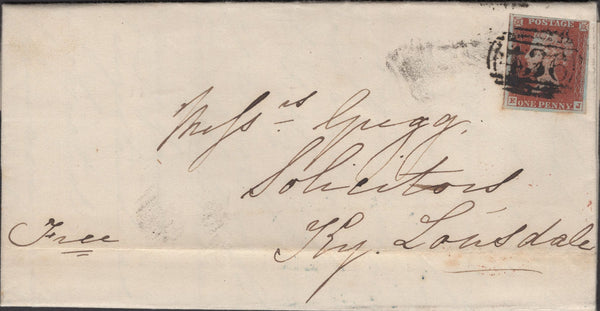 POSTAGE
ONE PENNY
Mess.rs Gregg.
Solicitors
Ky. Lonsdale
Free